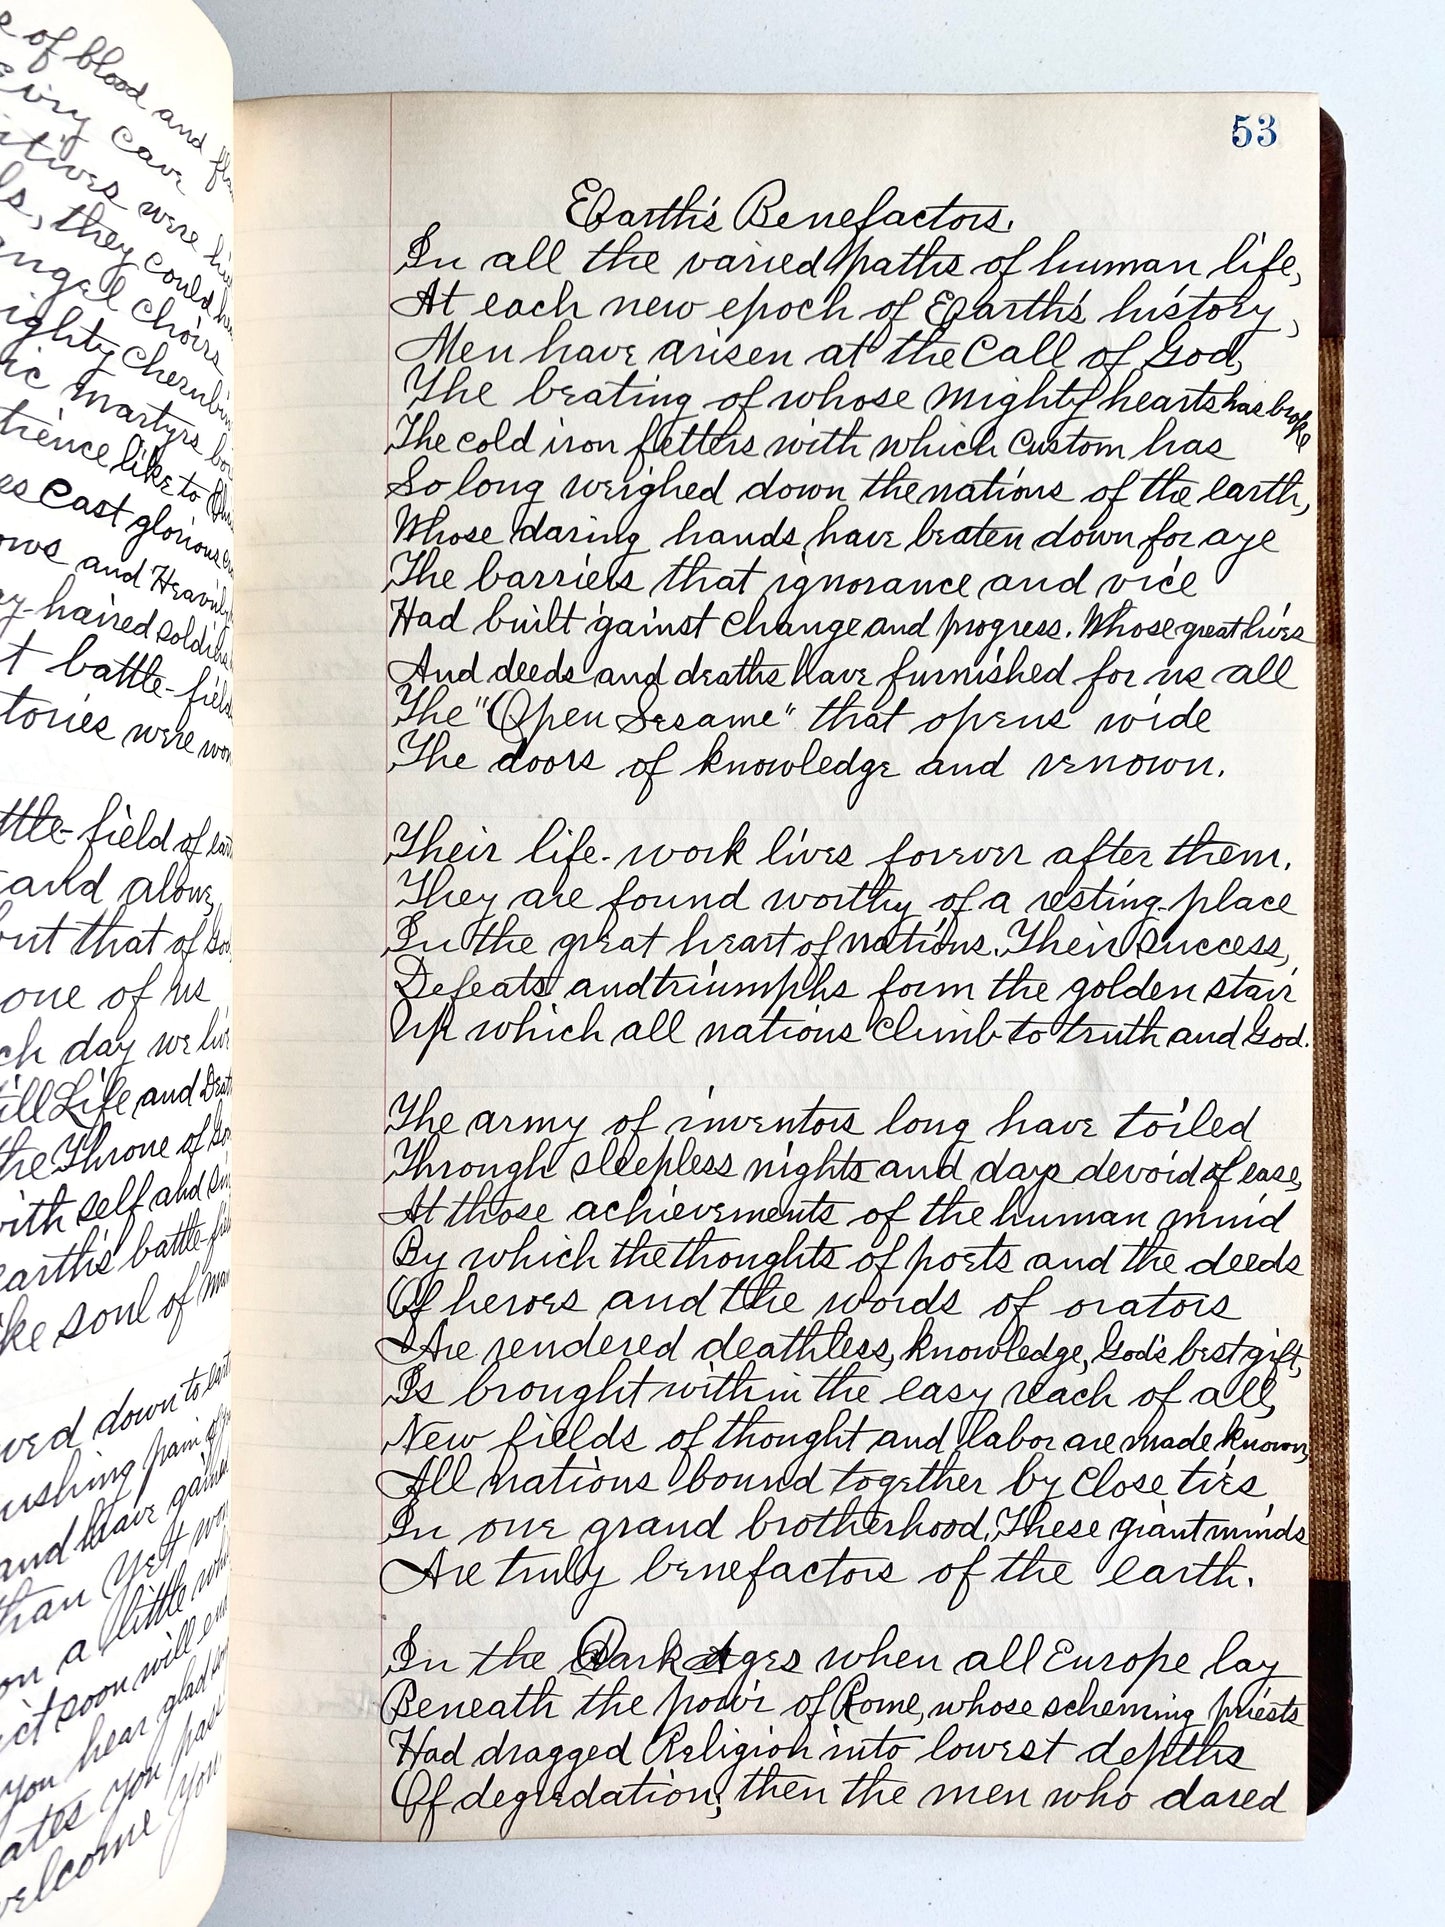 e of blood and
cave
were
ls, they could
angel choirs
ighty cherubim
ic martyrs
tience like to
es cast glorious
ows and Heavenly
haired soldiers
t battle-field
tories were won
ttle-field of
and alone,
but that of God
one of us
ch day we live
till Life and Death
the Throne of God
with self and sin
earth's battle-field
ike soul of
wed down to
ushing pain of
and have gained
than Yet
on a little while
ct soon will end
you hear glad
ates you pass
welcome you
53
Earth's Benefactors.
In all the varied paths of human life,
At each new epoch of Earth's history,
Men have arisen at the call of God,
The beating of whose mighty hearts has broke
The cold iron fetters with which custom has
So long weighed down the nations of the earth,
Whose daring hands have beaten down for aye
The barriers that ignorance and vice
Had built 'gainst change and progress. Whose great lives
And deeds and deaths have furnished for us all
The "Open Sesame" that opens wide
The doors of knowledge and renown.
Their life-work lives forever after them.
They are found worthy of a resting-place
In the great heart of nations. Their success,
Defeats and triumphs form the golden stair
Up which all nations climb to truth and God.
The army of inventors long have toiled
Through sleepless nights and days devoid of ease,
At those achievements of the human mind
By which the thoughts of poets and the deeds
Of heroes and the words of orators
Are rendered deathless, knowledge, God's best gift,
Is brought within the easy reach of all,
New fields of thought and labor are made known,
All nations bound together by close ties,
In one grand brotherhood. These giant minds
Are truly benefactors of the earth.
In the Dark Ages when all Europe lay
Beneath the power of Rome, whose scheming priests
Had dragged Religion into lowest depths
Of degredation; then the men who dared